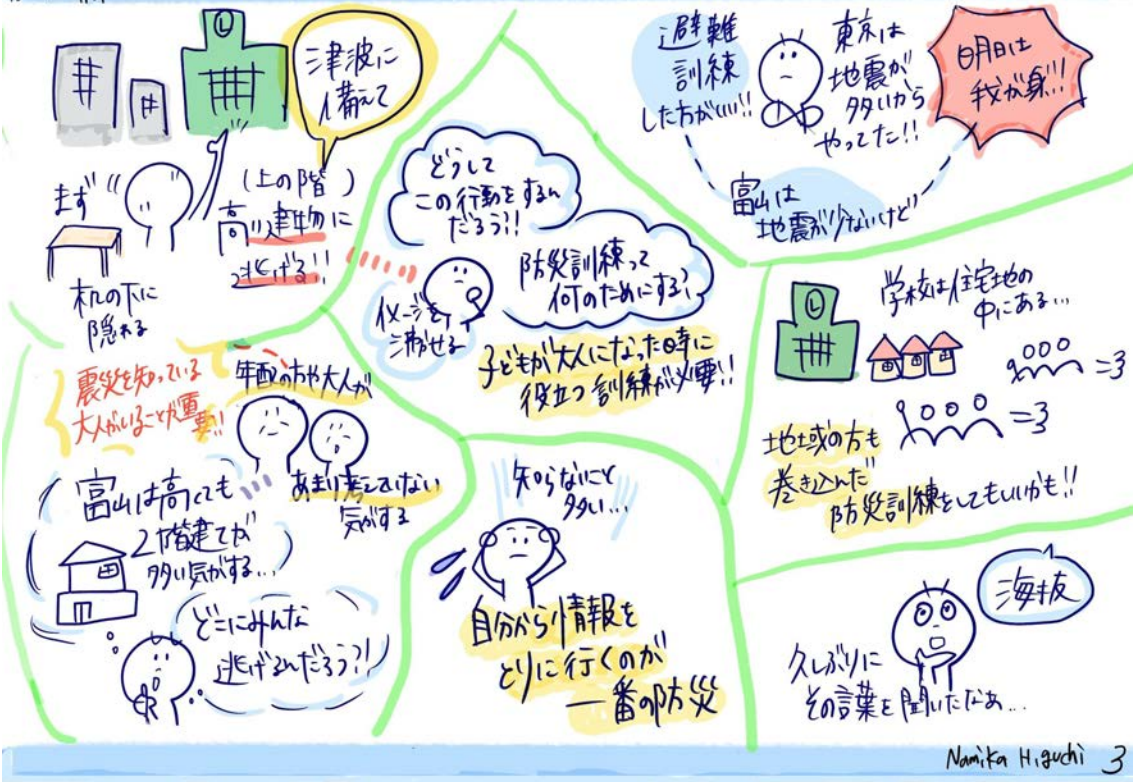 津波に
備えて
まず
机の下に
隠れる
(上の階)
高い建物に
逃げる!!
どうして
この行動をするん
だろう?!
防災訓練って
何のためにする?
イメージを
沸かせる
子どもが大人になった時に
役立つ訓練が必要!!
避難
訓練
した方がいい!!
東京は
地震が
多いから
やってた!!
明日は
我が身!!
富山は
地震が少ないけど
学校は住宅地の
中にある...
地域の方も
巻き込んだ
防災訓練をしてもいいかも!!
震災を知っている
大人がいることが重要!!
年配の方や大人が
あまり考えていない
気がする
富山は高くても
2階建てが
多い気がする...
どこにみんな
逃げるんだろう?!
知らないこと
多い...
自分から情報を
とりに行くのが
一番の防災
海抜
久しぶりに
その言葉を聞いたなぁ...
Namika Higuchi 3